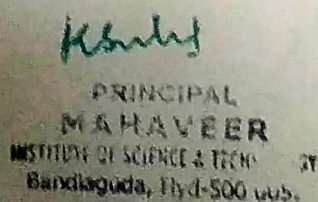 PRINCIPAL
MAHAVEER
INSTITUTE OF SCIENCE & TECH
Bandlaguda, Hyd-500